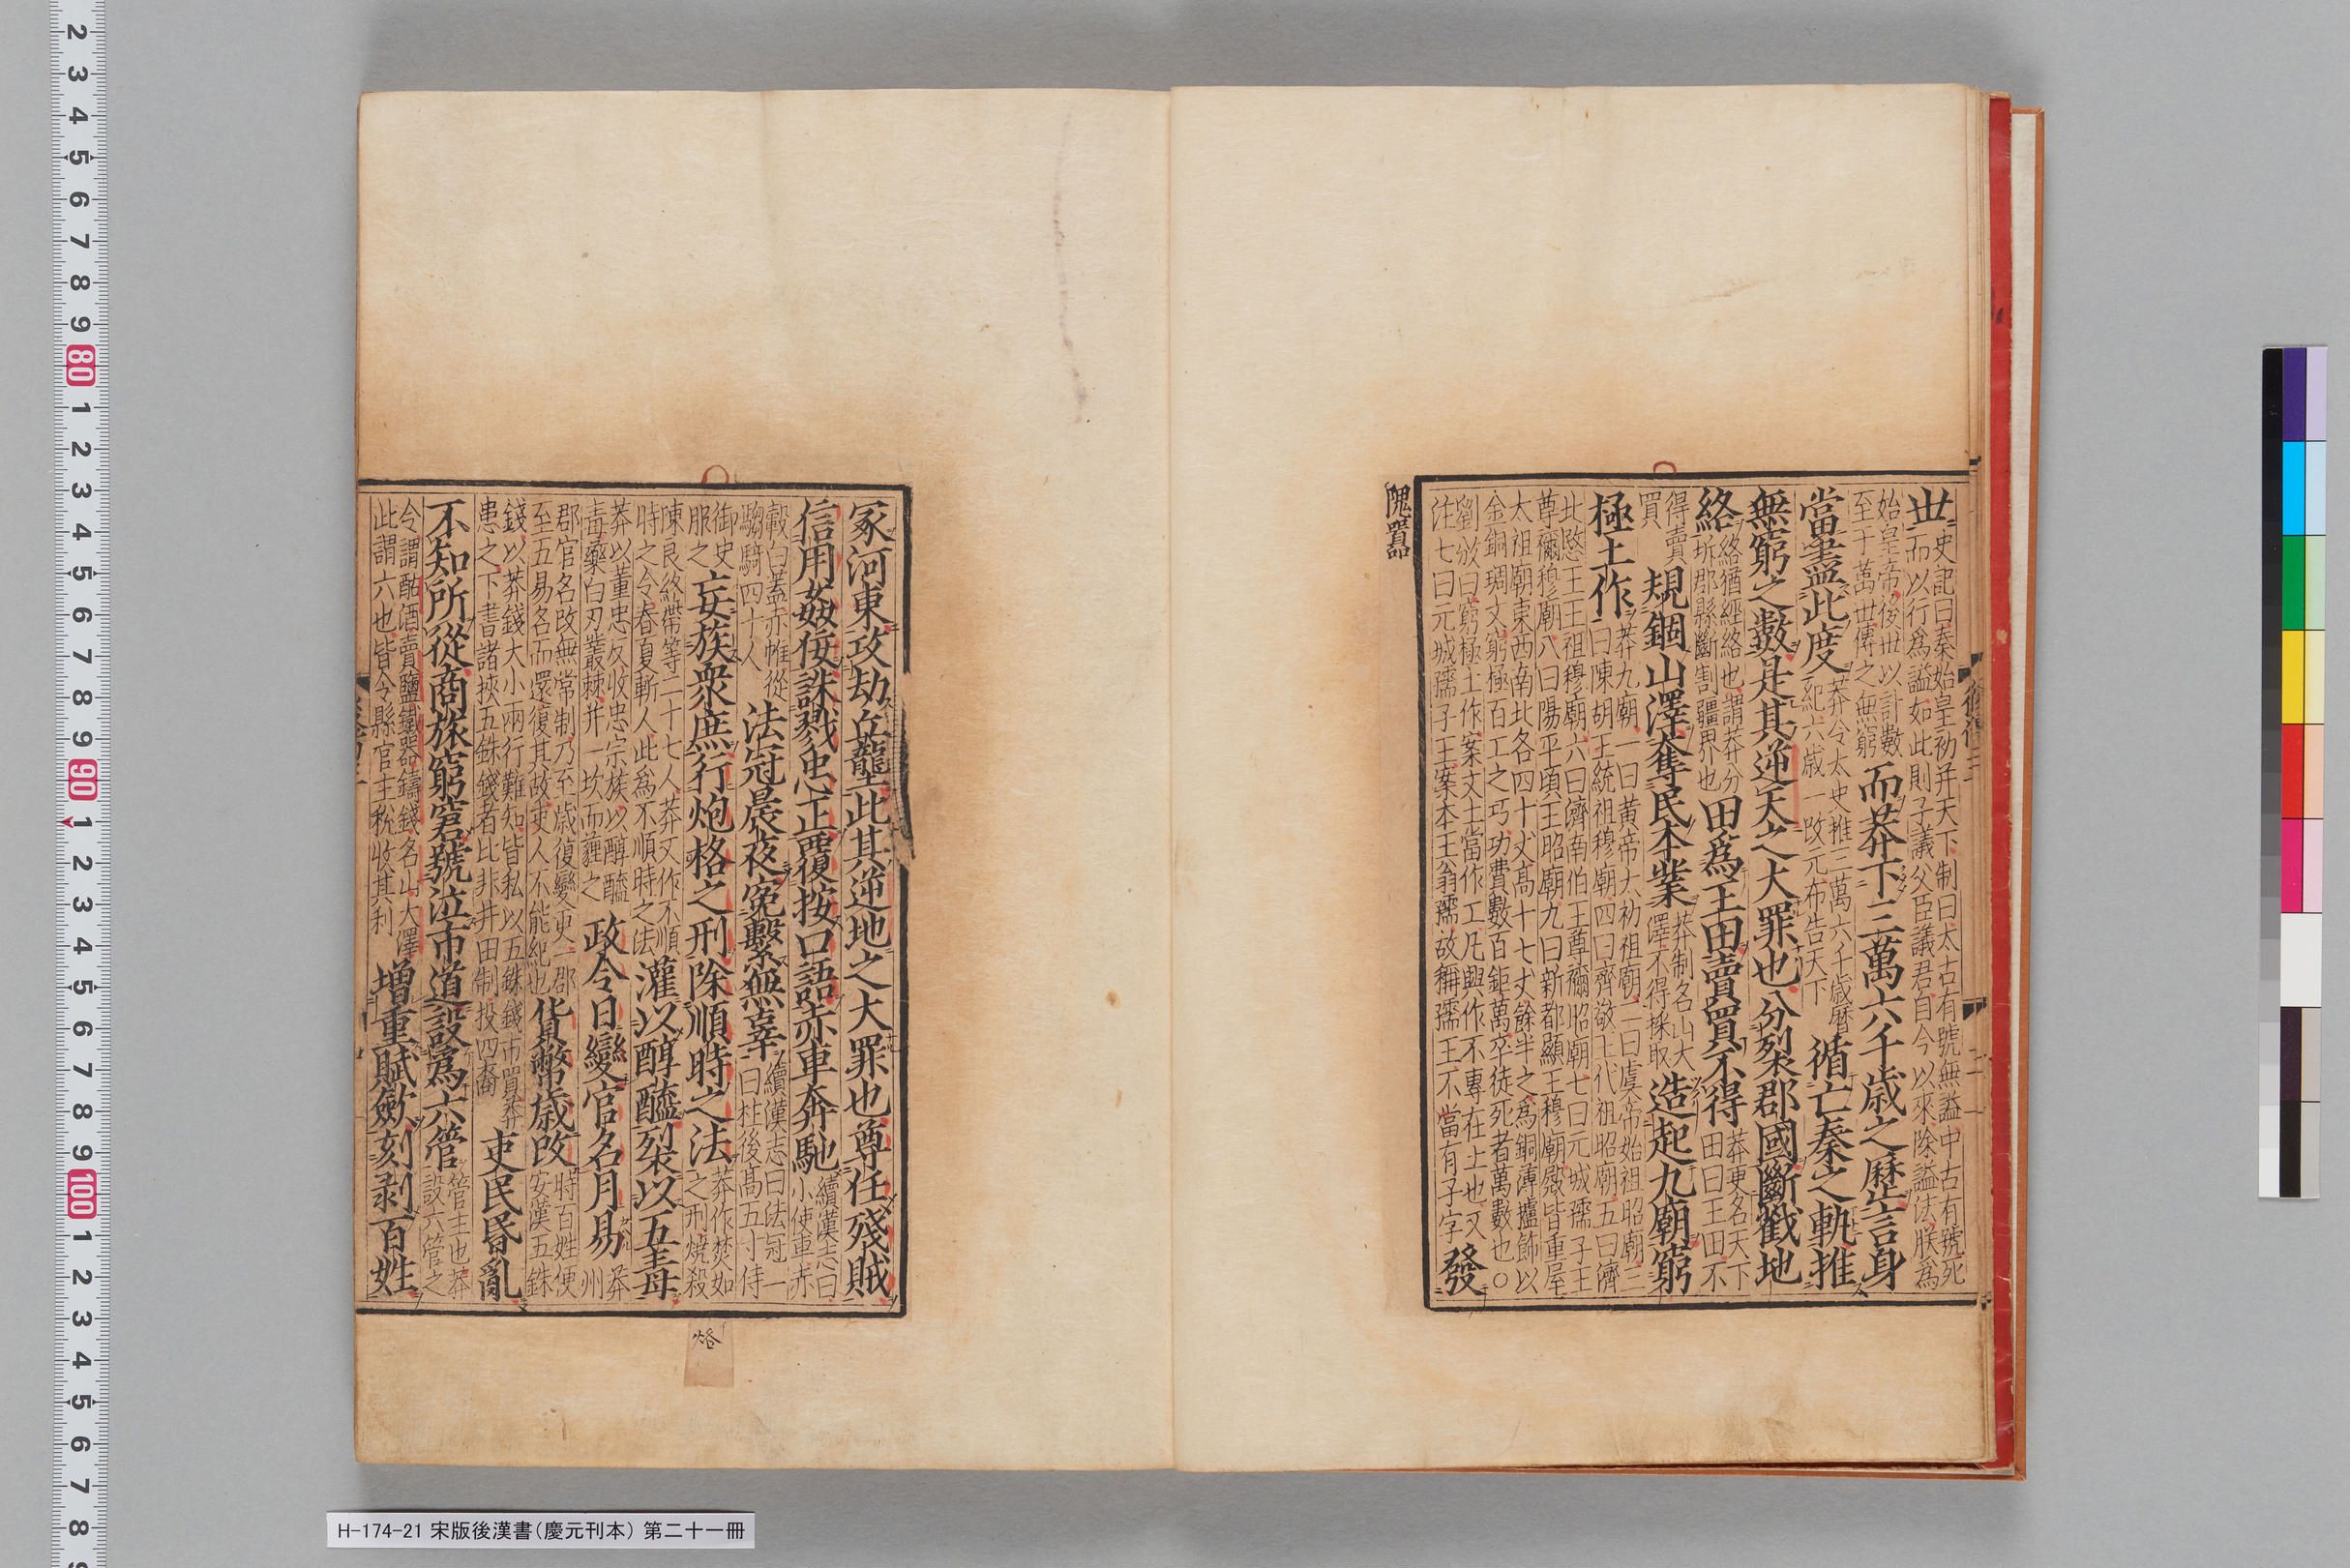 世史記曰秦始皇初并天下制曰太古有號無謚中古有號死
而以行爲謚如此則子議父臣議君自今以來除謚法朕爲
始皇帝後世以計數
至于萬世傳之無窮而莽下三萬六千歲之曆言身
當盡此度莽令太史推三萬六千歲曆
紀六歲一改元布告天下循亡秦之軌推
無窮之數是其逆天之大罪也分裂郡國斷截地
絡絡猶經絡也謂莽分
坼郡縣斷割疆界也田爲王田賣買不得莽更名天下
田曰王田不
得賣
買規錮山澤奪民本業莽制名山大
澤不得採取造起九廟窮
極土作莽九廟一曰黃帝太初祖廟二曰虞帝始祖昭廟三
曰陳胡王統祖穆廟四曰齊敬王代祖昭廟五曰濟
北愍王王祖穆廟六曰濟南伯王尊禰昭廟七曰元城孺子王
尊禰穆廟八曰陽平頃王昭廟九曰新都顯王穆廟殿皆重屋
太祖廟東西南北各四十丈高十七丈餘半之爲銅薄攎飾以
金銅琱文窮極百工之巧功費數百鉅萬卒徒死者萬數也○
劉攽曰窮極土作案文士當作工凡興作不專在土也又
注七曰元城孺子王案本王翁孺故稱孺王不當有子字發
隗囂
冢河東攻劫丘壟此其逆地之大罪也尊任殘賊
信用姦佞誅戮忠正覆按口語赤車奔馳續漢志曰
小使車赤
轂白蓋赤帷從
騶騎四十人法冠晨夜冤繫無辜續漢志曰法冠一
曰柱後高五寸侍
御史
服之妄族衆庶行炮格之刑除順時之法莽作焚如
之刑燒殺
陳良終帶等二十七人莽又作不順
時之令春夏斬人此爲不順時之法灌以醇醯裂以五毒
莽以董忠反收忠宗族以醇醯
毒藥白刃叢棘并一坎而薶之政令日變官名月易莽
州
郡官名改無常制乃至歲復變更一郡
至五易名而還復其故吏人不能紀也貨幣歲改時百姓便
安漢五銖
錢以莽錢大小兩行難知皆私以五銖錢市買莽
患之下書諸挾五銖錢者比非井田制投四裔吏民昏亂
不知所從商旅窮窘號泣市道設爲六管管主也莽
設六管之
令謂酤酒賣鹽鐵器鑄錢名山大澤
此謂六也皆令縣官主稅收其利增重賦斂刻剥百姓
烙
H-174-21 宋版後漢書(慶元刊本) 第二十一冊